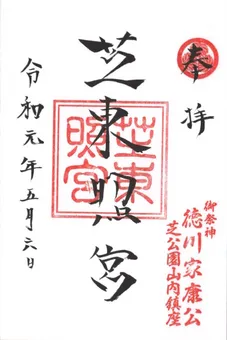 奉拝
御祭神
徳川家康公
芝公園山内鎮座
芝東照宮
芝東照宮
令和元年五月六日